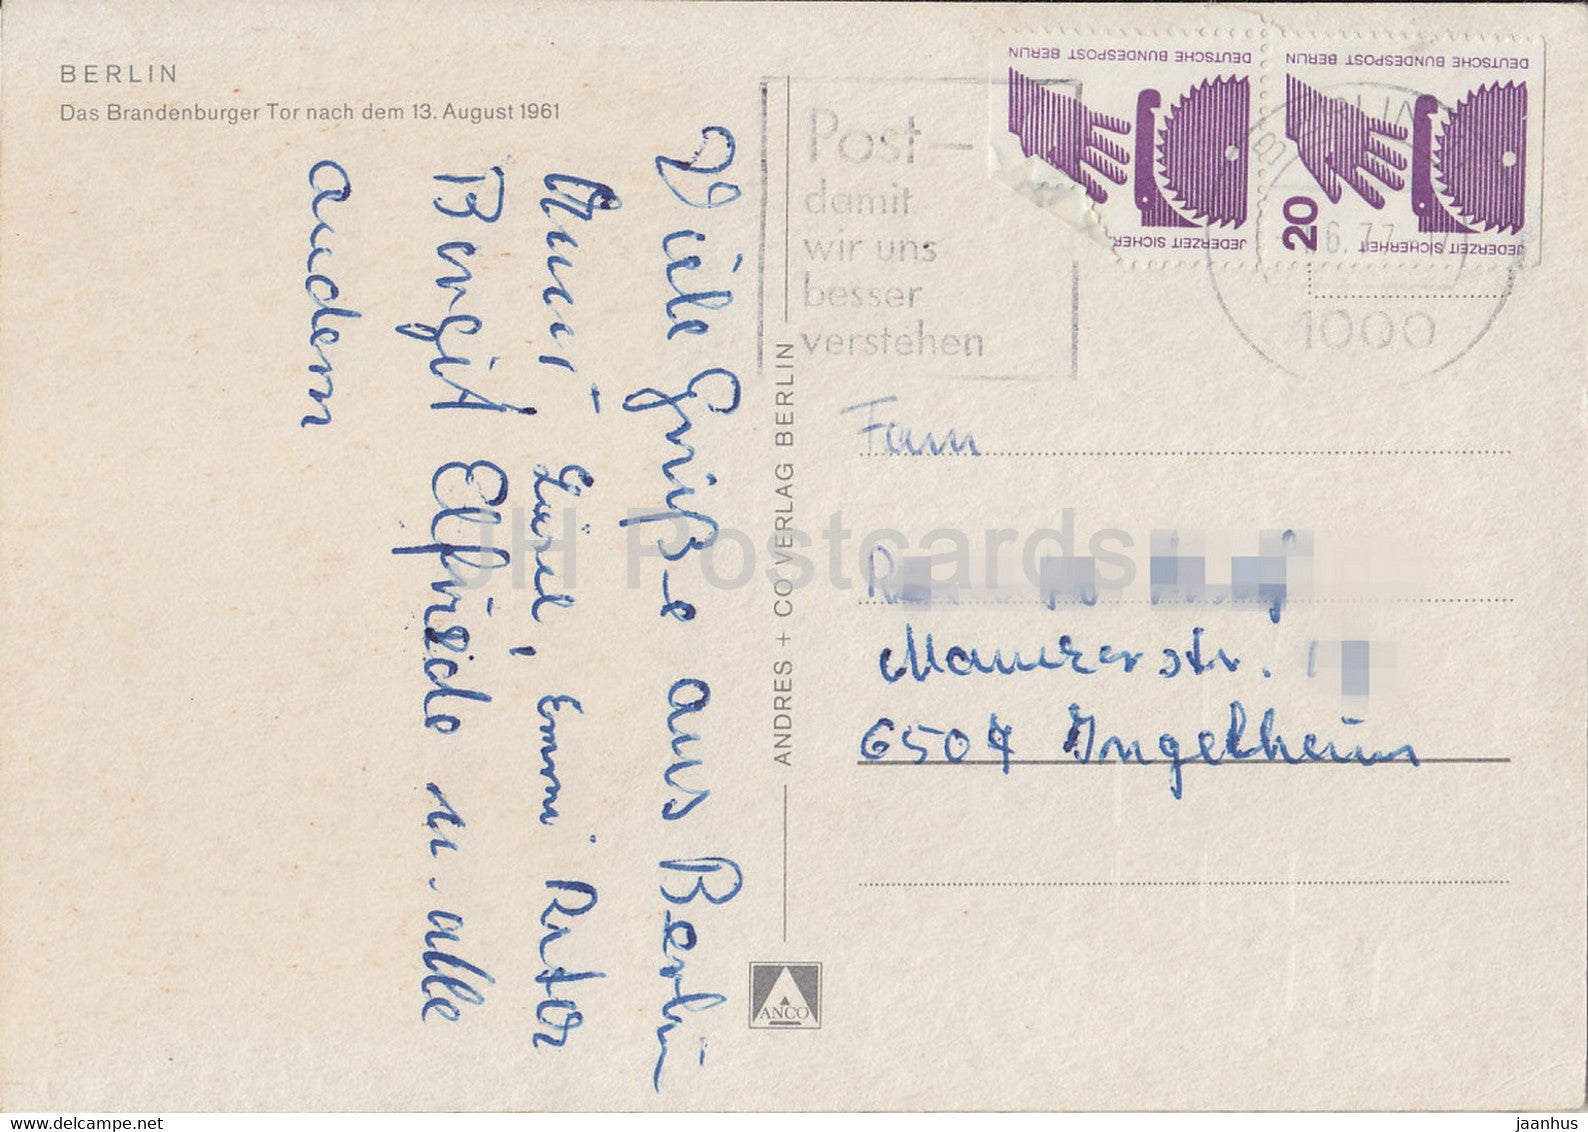 BERLIN
Das Brandenburger Tor nach dem 13. August 1961
Viele Grüße aus Berlin
Emmi Peter
Birgit Elfriede u. alle
andern
ANDRES + CO VERLAG BERLIN
ANCO
Post –
damit
wir uns
besser
verstehen
DEUTSCHE BUNDESPOST BERLIN
JEDERZEIT SICHER
DEUTSCHE BUNDESPOST BERLIN
20
JEDERZEIT SICHERHEIT
6.77
1000
Fam
Mainzerstr.
6507 Ingelheim
JH Postcards
BERLIN
jaanhus